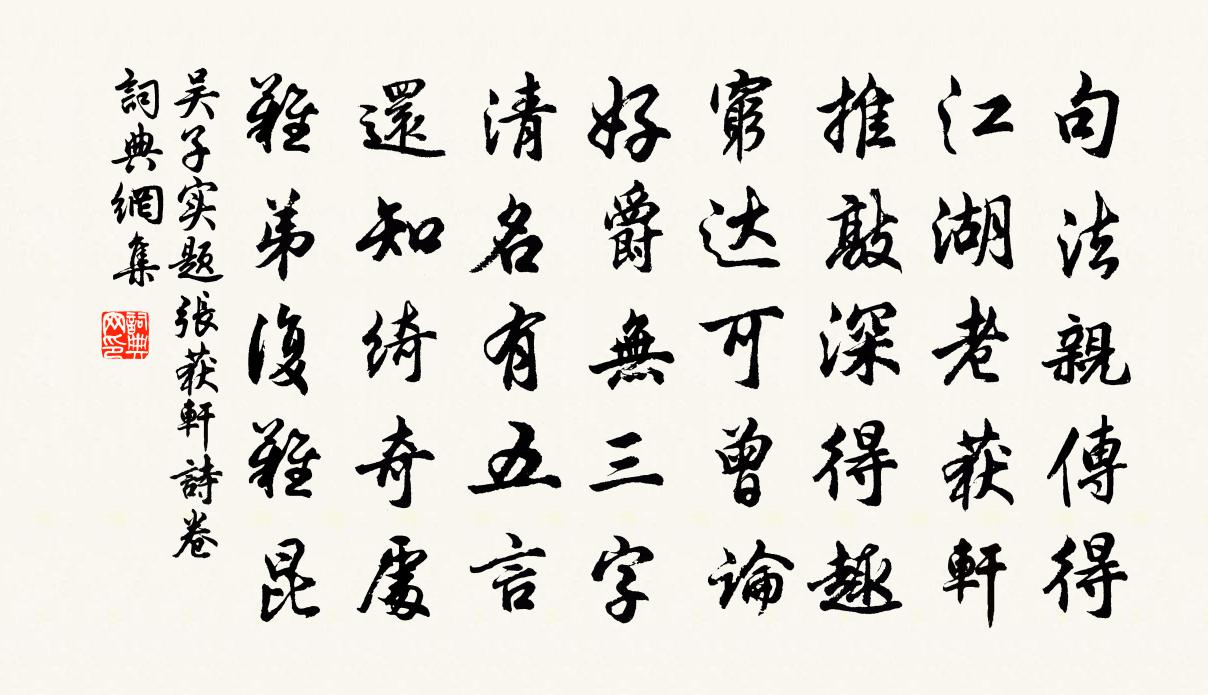 句法親傳得
江湖老荻軒
推敲深得趣
窮达可曾論
好爵無三字
清名有五言
還知綺奇處
難弟復難昆
吴子实题張荻軒詩卷
詞典網集
詞典网印